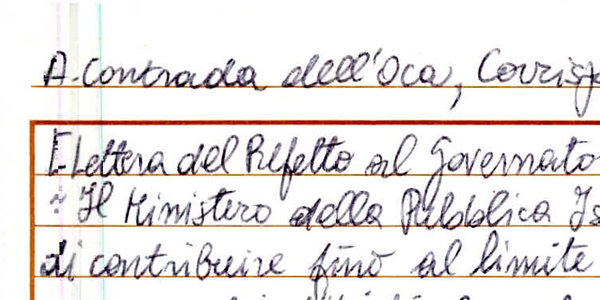 A. Contrada dell'Oca, Corrisp
[Lettera del Prefetto al Governato
"Il Ministero della Pubblica Is
di contribuire fino al limite